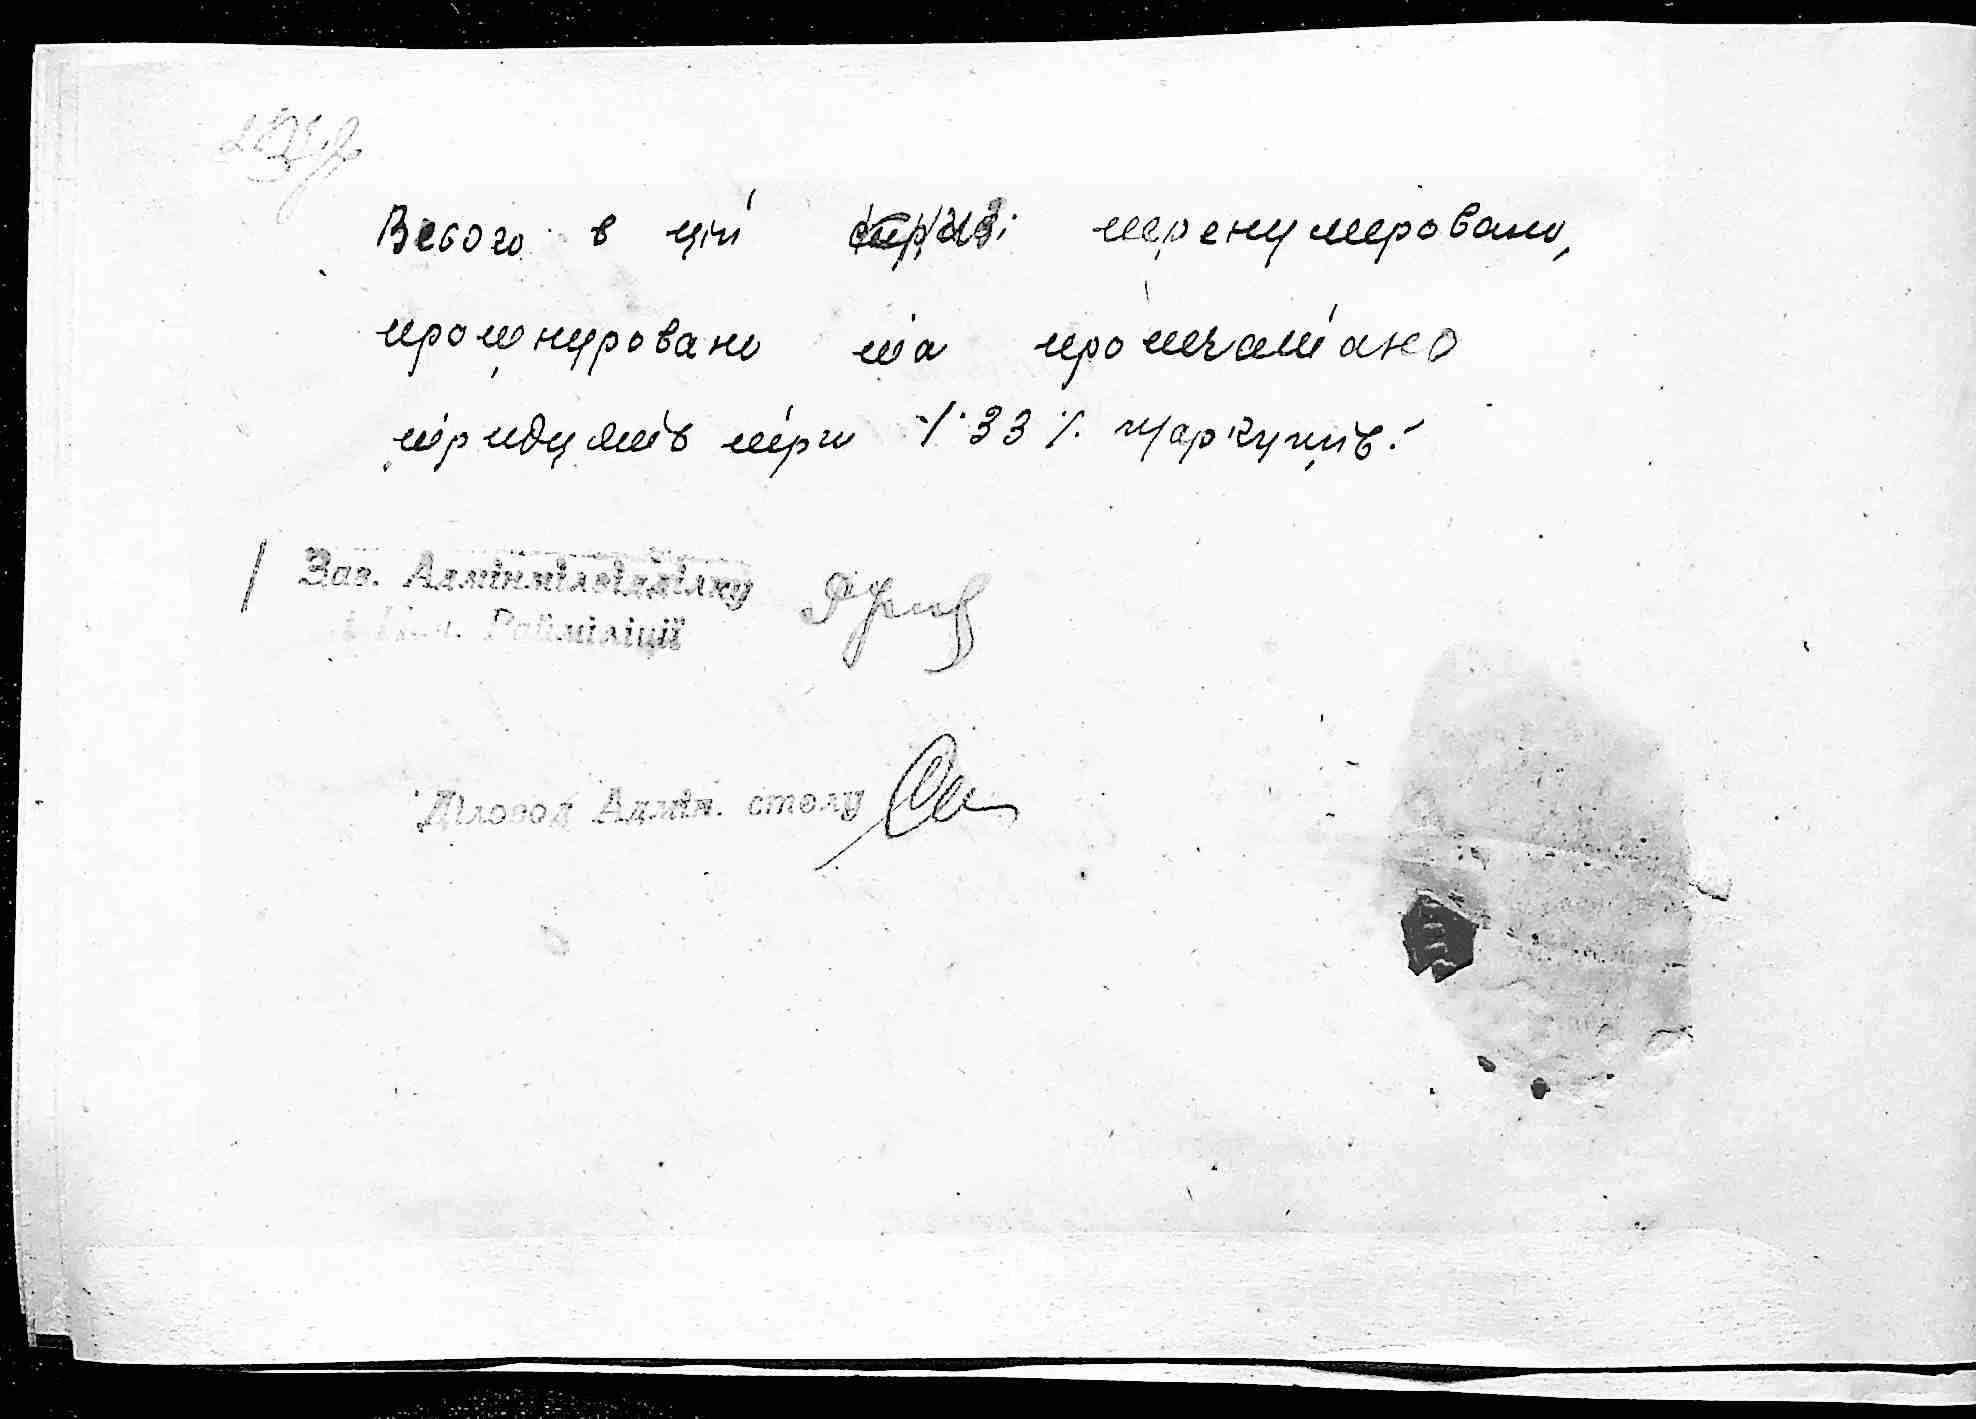 Всього в цій книзі перенумеровано,
прошнуровано та пропечатано
тридцять три /33/ аркушів.
Зав. Адмінміліввідділку
і Нач. Райміліції
Діловод Адмін. столу